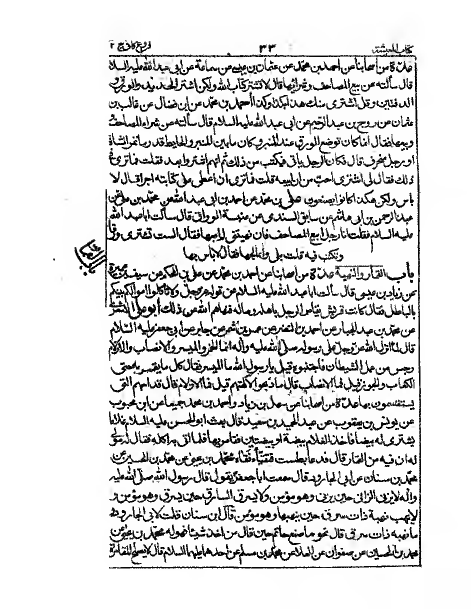 كتاب المعيشة ٣٣ فروع كافي ج ٢
عدة من أصحابنا عن أحمد بن محمد عن عثمان بن عيسى عن سماعة عن أبي عبد الله عليه السلام
قال سألته عن بيع المصاحف وشرائها فقال لا تشتر كتاب الله ولكن اشتر الحديد والورق و
الدفتين وقل أشتري منك هذا بكذا وكذا أحمد بن محمد عن ابن فضال عن غالب بن
عثمان عن روح بن عبد الرحيم عن أبي عبد الله عليه السلام قال سألته عن شراء المصاحف
وبيعها فقال إنما كان يوضع الورق عند المنبر وكان ما بين المنبر والحايط قدر ما تمر الشاة
أو رجل منحرف قال فكان الرجل يأتي فيكتب من ذلك ثم إنهم اشتروا بعد قلت فما ترى في
ذلك فقال لي أشتري أحب من أن أبيعه قلت فما ترى أن أعطي على كتابته أجرا قال لا
بأس ولكن هكذا كانوا يصنعون علي بن محمد عن أحمد بن أبي عبد الله عن محمد بن علي عن
عبد الرحمن بن أبي هاشم عن سابق السندي عن عنبسة الوراق قال سألت أبا عبد الله
عليه السلام فقلت أنا رجل أبيع المصاحف فإن نهيتني لم أبعها فقال ألست تشتري ورقا
وتكتب فيه قلت بلى وأعالجها فقال لا بأس بها
باب القمار والنهبة عدة من أصحابنا عن أحمد بن محمد عن علي بن الحكم عن سيف بن عميرة
عن زياد بن عيسى قال سألت أبا عبد الله عليه السلام عن قوله عز وجل ولا تأكلوا أموالكم بينكم
بالباطل فقال كانت قريش يقامر الرجل بأهله وماله فنهاهم الله عن ذلك أبو علي الأشعري
عن محمد بن عبد الجبار عن أحمد بن النضر عن عمرو بن شمر عن جابر عن أبي جعفر عليه السلام
قال لما أنزل الله عز وجل على رسوله صلى الله عليه وآله إنما الخمر والميسر والأنصاب والأزلام
رجس من عمل الشيطان فاجتنبوه قيل يا رسول الله ما الميسر فقال كل ما يقمر به حتى
الكعاب والجوز قيل فما الأنصاب قال ما ذبحوا لآلهتهم قيل فما الأزلام قال قداحهم التي
يستقسمون بها عدة من أصحابنا عن سهل بن زياد وأحمد بن محمد جميعا عن ابن محبوب
عن يونس بن يعقوب عن عبد الحميد بن سعيد قال بعث أبو الحسن عليه السلام غلاما
يشتري له بيضا فأخذ الغلام بيضة أو بيضتين فقامر بها فلما أتى به أكله فقال له مولى
له إن فيه من القمار قال فدعا بطشت فتقيأ فقاءه محمد بن يحيى عن محمد بن الحسين عن
محمد بن سنان عن أبي الجارود قال سمعت أبا جعفر يقول قال رسول الله صلى الله عليه
وآله لا يزني الزاني حين يزني وهو مؤمن ولا يسرق السارق حين يسرق وهو مؤمن و
لا ينهب نهبة ذات سرف حين ينهبها وهو مؤمن قال ابن سنان قلت لأبي الجارود
ما نهبة ذات سرف قال نحو ما صنع حاتم حين قال من أخذ شيئا فهو له محمد بن يحيى عن
محمد بن الحسين عن صفوان عن العلاء عن محمد بن مسلم عن أحدهما عليهما السلام قال لا يصلح المقامرة